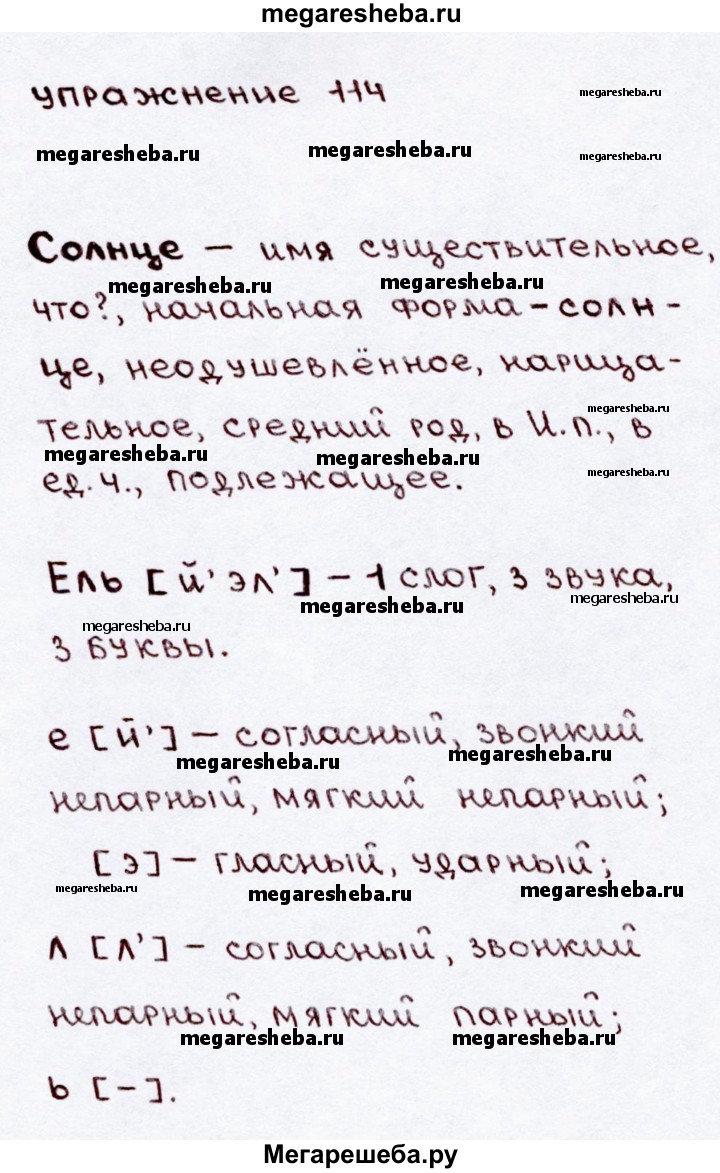 megaresheba.ru
упражнение 114
megaresheba.ru
megaresheba.ru megaresheba.ru megaresheba.ru
Солнце – имя существительное,
megaresheba.ru megaresheba.ru
что?, начальная форма – солн-
це, неодушевлённое, нарица-
megaresheba.ru
тельное, средний род, в И.п., в
megaresheba.ru megaresheba.ru
ед.ч., подлежащее.
megaresheba.ru
Ель [й’эл’] – 1 слог, 3 звука,
megaresheba.ru megaresheba.ru
megaresheba.ru
3 буквы.
е [й’] – согласный, звонкий
megaresheba.ru megaresheba.ru
непарный, мягкий непарный;
[э] – гласный, ударный;
megaresheba.ru megaresheba.ru megaresheba.ru
л [л’] – согласный, звонкий
непарный, мягкий парный;
megaresheba.ru megaresheba.ru
ь [–].
Мегарешеба.ру